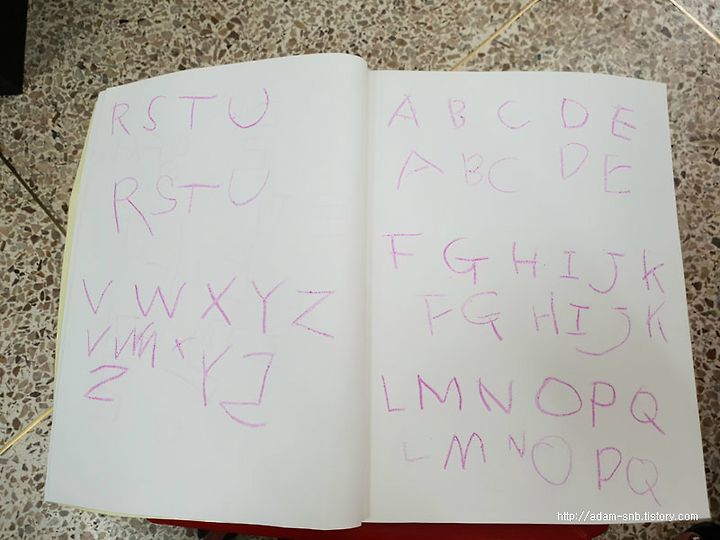 RSTU
RSTU
V W X Y Z
V W x Y Z
Z
A B C D E
A B C D E
F G H I J K
F G H I J K
L M N O P Q
L M N O P Q
http://adam-snb.tistory.com